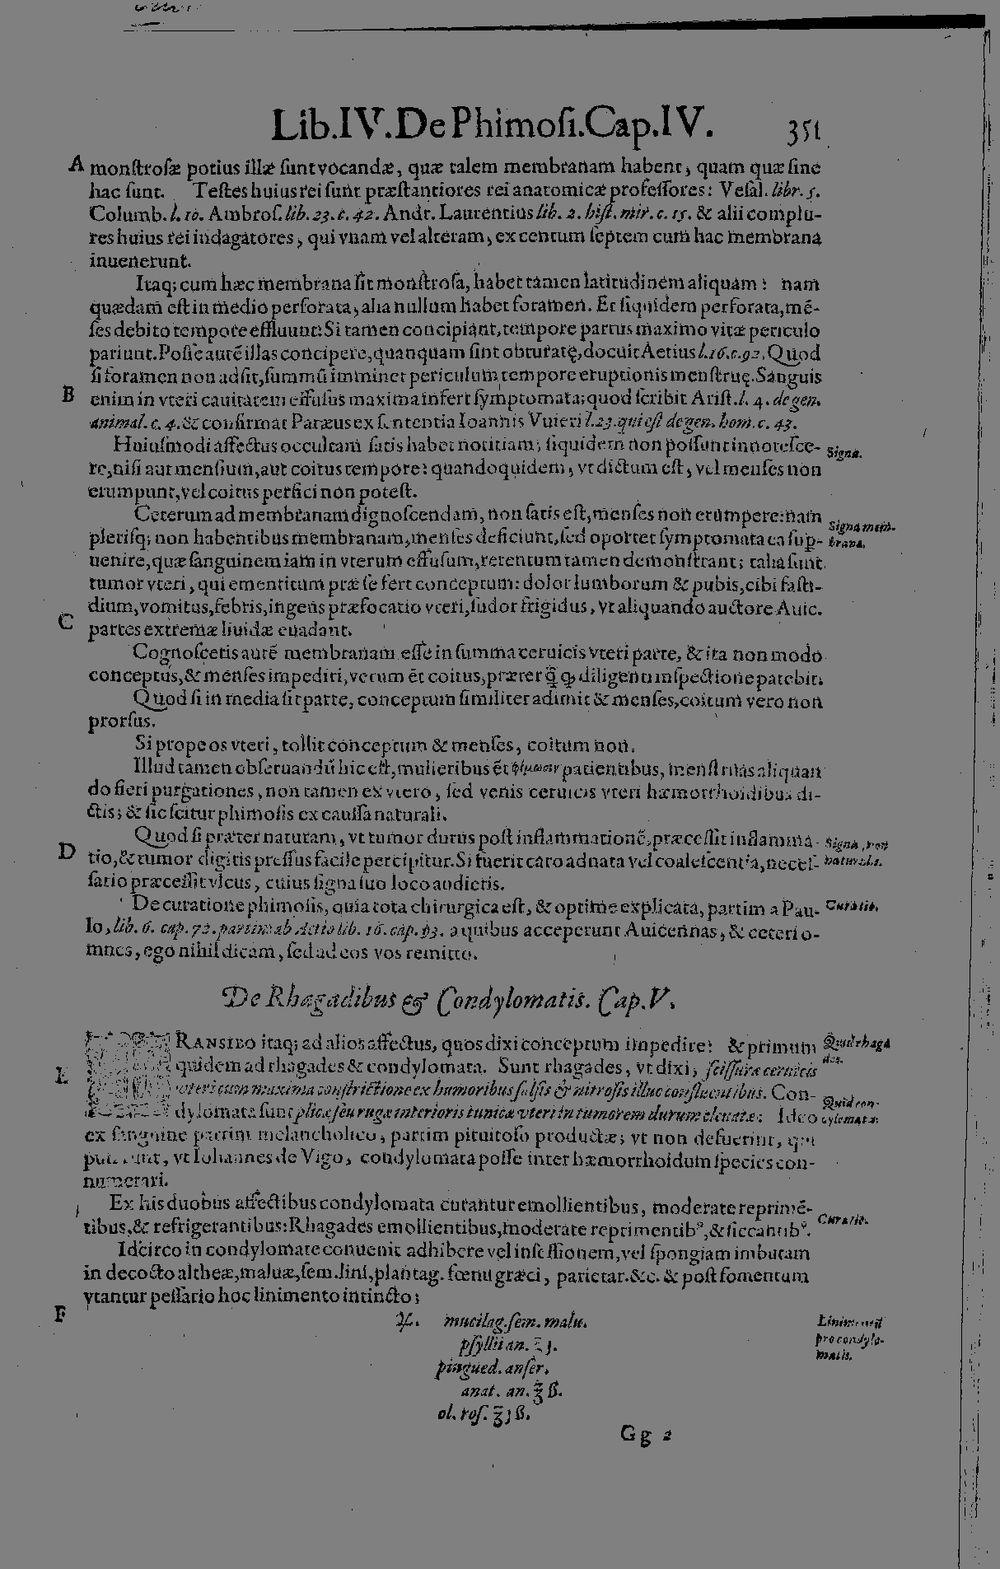 Lib.IV.De Phimoſi.Cap.IV. 351
A monſtroſæ potius illæ ſunt vocandæ, quæ talem membranam habent, quam quæ ſine
hac ſunt. Teſtes huius rei ſunt præſtantiores rei anatomicæ profeſſores: Veſal. libr. 5.
Columb. l. 10. Ambroſ. lib. 23. c. 42. Andr. Laurentius lib. 2. hiſt. mir. c. 15. & alii complu-
res huius rei indagatores, qui vnam vel alteram, ex centum ſeptem cum hac membrana
inuenerunt.
Itaq; cum hæc membrana ſit monſtroſa, habet tamen latitudinem aliquam: nam
quædam eſt in medio perforata, alia nullum habet foramen. Et ſiquidem perforata, mē-
ſes debito tempore effluunt: Si tamen concipiant, tempore partus maximo vitæ periculo
pariunt. Poſſe autē illas concipere, quanquam ſint obturatę, docuit Aetius l.16.c.92. Quod
ſi foramen non adſit, ſummū imminet periculum, tempore eruptionis menſtruę. Sanguis
B enim in vteri cauitatem effuſus maxima infert ſymptomata; quod ſcribit Ariſt. l. 4. de gen.
animal. c. 4. & confirmat Paræus ex ſententia Ioannis Vuieri l.23. qui eſt de gen. hom. c. 43.
Huiuſmodi affectus occultam ſatis habet notitiam; ſiquidem non poſſunt innoteſce-
Signa.
re, niſi aut menſium, aut coitus tempore: quandoquidem, vt dictum eſt, vel menſes non
erumpunt, vel coitus perfici non poteſt.
Ceterum ad membranam dignoſcendam, non ſatis eſt, menſes non erumpere: nam
Signa mem-
pleriſq; non habentibus membranam, menſes deficiunt, ſed oportet ſymptomata ea ſup-
brana.
uenire, quæ ſanguinem iam in vterum effuſum, retentum tamen demonſtrant; talia ſunt
tumor vteri, qui ementitum præ ſe fert conceptum: dolor lumborum & pubis, cibi faſti-
dium, vomitus, febris, ingens præfocatio vteri, ſudor frigidus, vt aliquando auctore Auic.
C partes extremæ liuidæ euadant.
Cognoſcetis autē membranam eſſe in ſumma ceruicis vteri parte, & ita non modo
conceptus, & menſes impediri, verum ēt coitus, præter diligenti inſpectione patebit.
Quod ſi in media ſit parte, conceptum ſimiliter adimit & menſes, coitum vero non
prorſus.
Si prope os vteri, tollit conceptum & menſes, coitum non.
Illud tamen obſeruandū hic eſt, mulieribus ēt φίμωσιν patientibus, menſtruas aliquan
do fieri purgationes, non tamen ex vtero, ſed venis ceruicis vteri hæmorrhoidibus di-
ctis; & ſic ſcitur phimoſis ex cauſſa naturali.
Quod ſi præter naturam, vt tumor durus poſt inflammationē, præceſſit inflamma-
Signa non
D tio, & tumor digitis preſſus facile percipitur. Si fuerit caro adnata vel coaleſcentia, neceſ-
naturalis.
ſario præceſſit vlcus, cuius ſigna ſuo loco audictis.
De curatione phimoſis, quia tota chirurgica eſt, & optime explicata, partim a Pau-
Curatio.
lo, lib. 6. cap. 72. partim ab Aetio lib. 16. cap. 93. a quibus acceperunt Auicennas, & ceteri o-
mnes, ego nihil dicam, ſed ad eos vos remitto.
De Rhagadibus & Condylomatis. Cap.V.
RANSIEO itaq; ad alios affectus, quos dixi conceptum impedire: & primum
Quid rhaga
E quidem ad rhagades & condylomata. Sunt rhagades, vt dixi, ſciſſuræ ceruicis
des.
vteri cum maxima conſtrictione ex humoribus ſalſis & nitroſis illuc confluentibus. Con-
Quid con-
dylomata ſunt plicæ ſeu rugæ interioris tunicæ vteri in tumorem durum eleuatæ: Ideo
dylomata.
ex ſanguine partim melancholico, partim pituitoſo productæ; vt non defuerint, qui
putarunt, vt Iohannes de Vigo, condylomata poſſe inter hæmorrhoidum ſpecies con-
numerari.
Ex his duobus affectibus condylomata curantur emollientibus, moderate reprimē-
Curatio.
tibus, & refrigerantibus: Rhagades emollientibus, moderate reprimentibꝰ, & ſiccantibꝰ.
Idcirco in condylomate conuenit adhibere vel inſeſſionem, vel ſpongiam imbutam
in decocto altheæ, maluæ, ſem. lini, plantag. fœnugræci, parietar. &c. & poſt fomentum
vtantur peſſario hoc linimento intincto;
F ℞. mucilag. ſem. malu.
Linimentū
pro condylo-
matis.
pſyllii an. ℥j.
pingued. anſer.
anat. an. ℥ß.
ol. roſ. ℥jß.
Gg 2